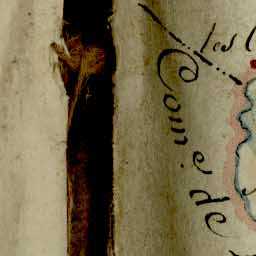 les
Com.e de